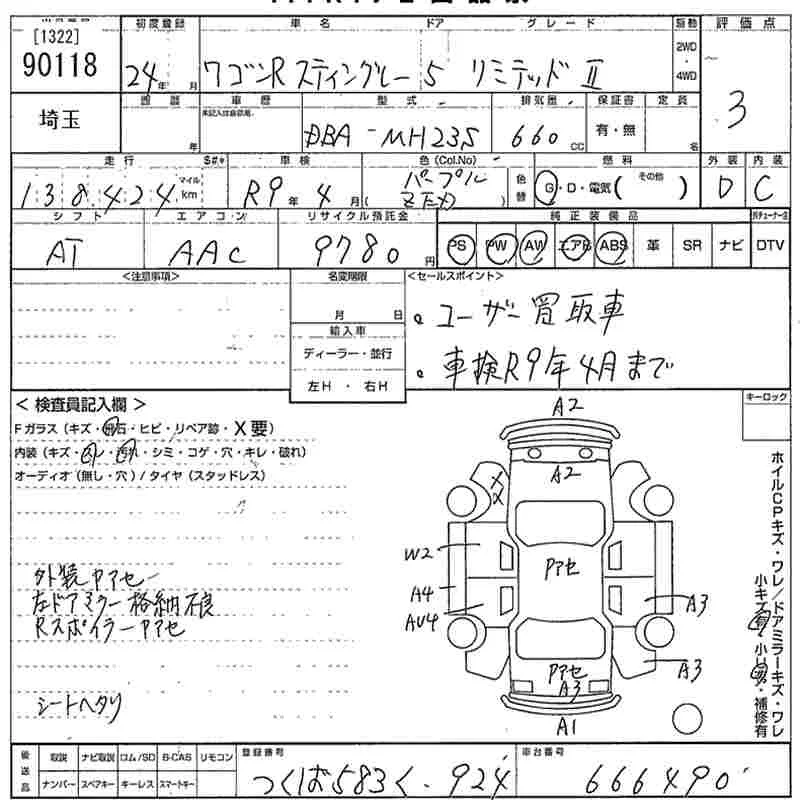 [1322]
90118
埼玉
初度登録
24年 月
車名 ドア グレード
ワゴンR スティングレー 5 リミテッドⅡ
駆動
2WD
4WD
評価点
3
年
車歴
未記入は自家用。
型式
DBA-MH23S
排気量
660cc
保証書
有・無
定員
名
走行
138,424 マイル km
車検
R9年 4月
色(Col.No)
パープル
ZTカ
色替
燃料
G・D・電気( その他 )
外装
D
内装
C
シフト
AT
エアコン
AAC
リサイクル預託金
9780円
純正装備品
PS PW AW エアB ABS 革 SR ナビ DTV
<注意事項>
名変期限
月 日
輸入車
ディーラー・並行
左H ・ 右H
<セールスポイント>
。ユーザー買取車
。車検R9年4月まで
<検査員記入欄>
Fガラス(キズ・飛石・ヒビ・リペア跡・X要)
内装(キズ・スレ・汚れ・シミ・コゲ・穴・キレ・破れ)
オーディオ(無し・穴)/タイヤ(スタッドレス)
外装ヤアセー
左ドアミラー格納不良
Rスポイラーヤアセ
シートヘタリ
キーロック
A2
A2
XX
W2
ヤアセ
A4
AU4
A3
A3
ヤアセ
A3
A1
ホイルCPキズ・ワレ/ドアミラーキズ・ワレ
小キズ有・小凹有・補修有
後送品
取説 ナビ取説 ロム/SD B-CAS リモコン
ナンバー スペアキー キーレス スマートキー
登録番号
つくば583く・924
車台番号
666490